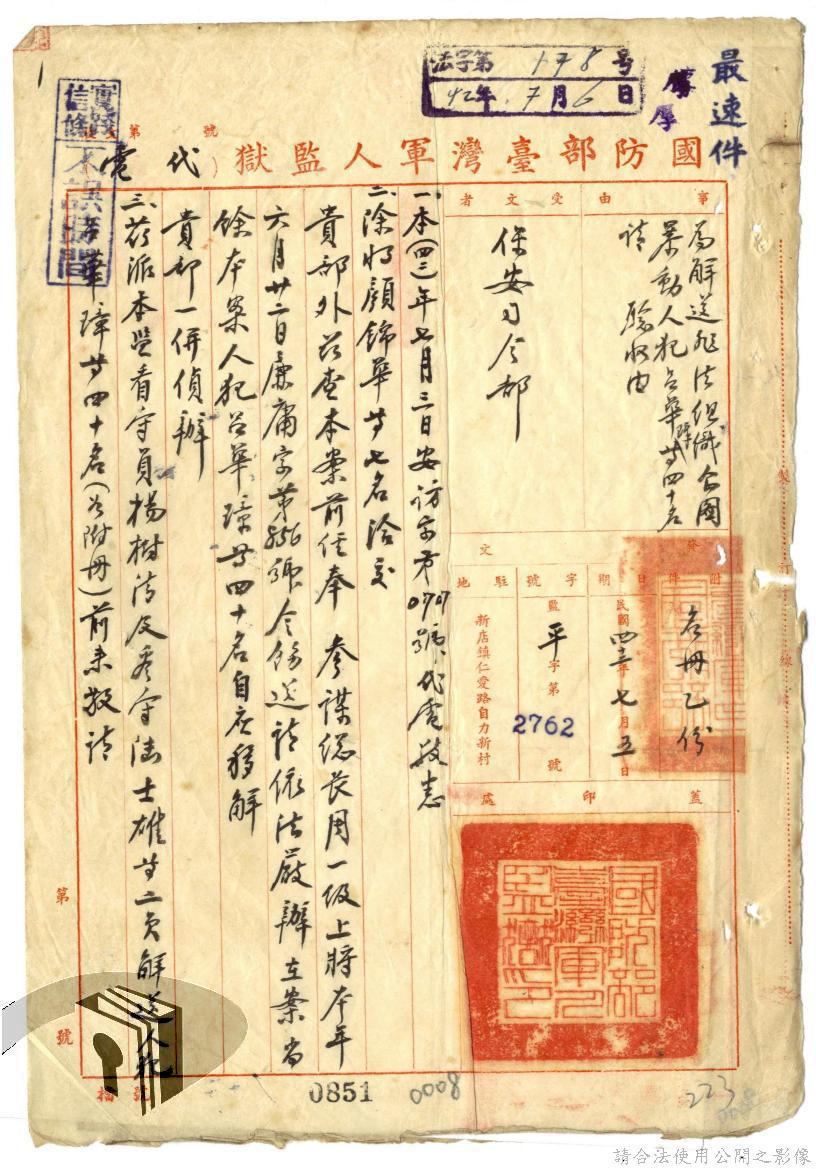 最速件
法字第178号
42年7月6日
國防部臺灣軍人監獄
代電
第 號
事由
為解送非法組織企圖
暴動人犯呂華璋等四十名
請 驗收由
受文者
保安司令部
發文
附件
名冊乙份
日期
民國四二年七月五日
字號
監平字第2762號
駐地
新店鎮仁愛路自力新村
蓋印處
國防部臺灣軍人監獄印
一、本(四二)年七月三日安訪字第 號代電敬悉
二、除將顧錦華等七名洽交
貴部外茲查本案前經奉 參謀總長周一級上將本年
六月廿二日廉庸字第856號令飭送請依法嚴辦在案尚
餘本案人犯呂華璋等四十名自應移解
貴部一併偵辦
三、茲派本監看守員楊樹清及看守陸士雄等二員解送人犯
呂華璋等四十名(如附冊)前來敬請
第 號
檔號
0851
0008
223
0008
裝訂線
請合法使用公開之影像